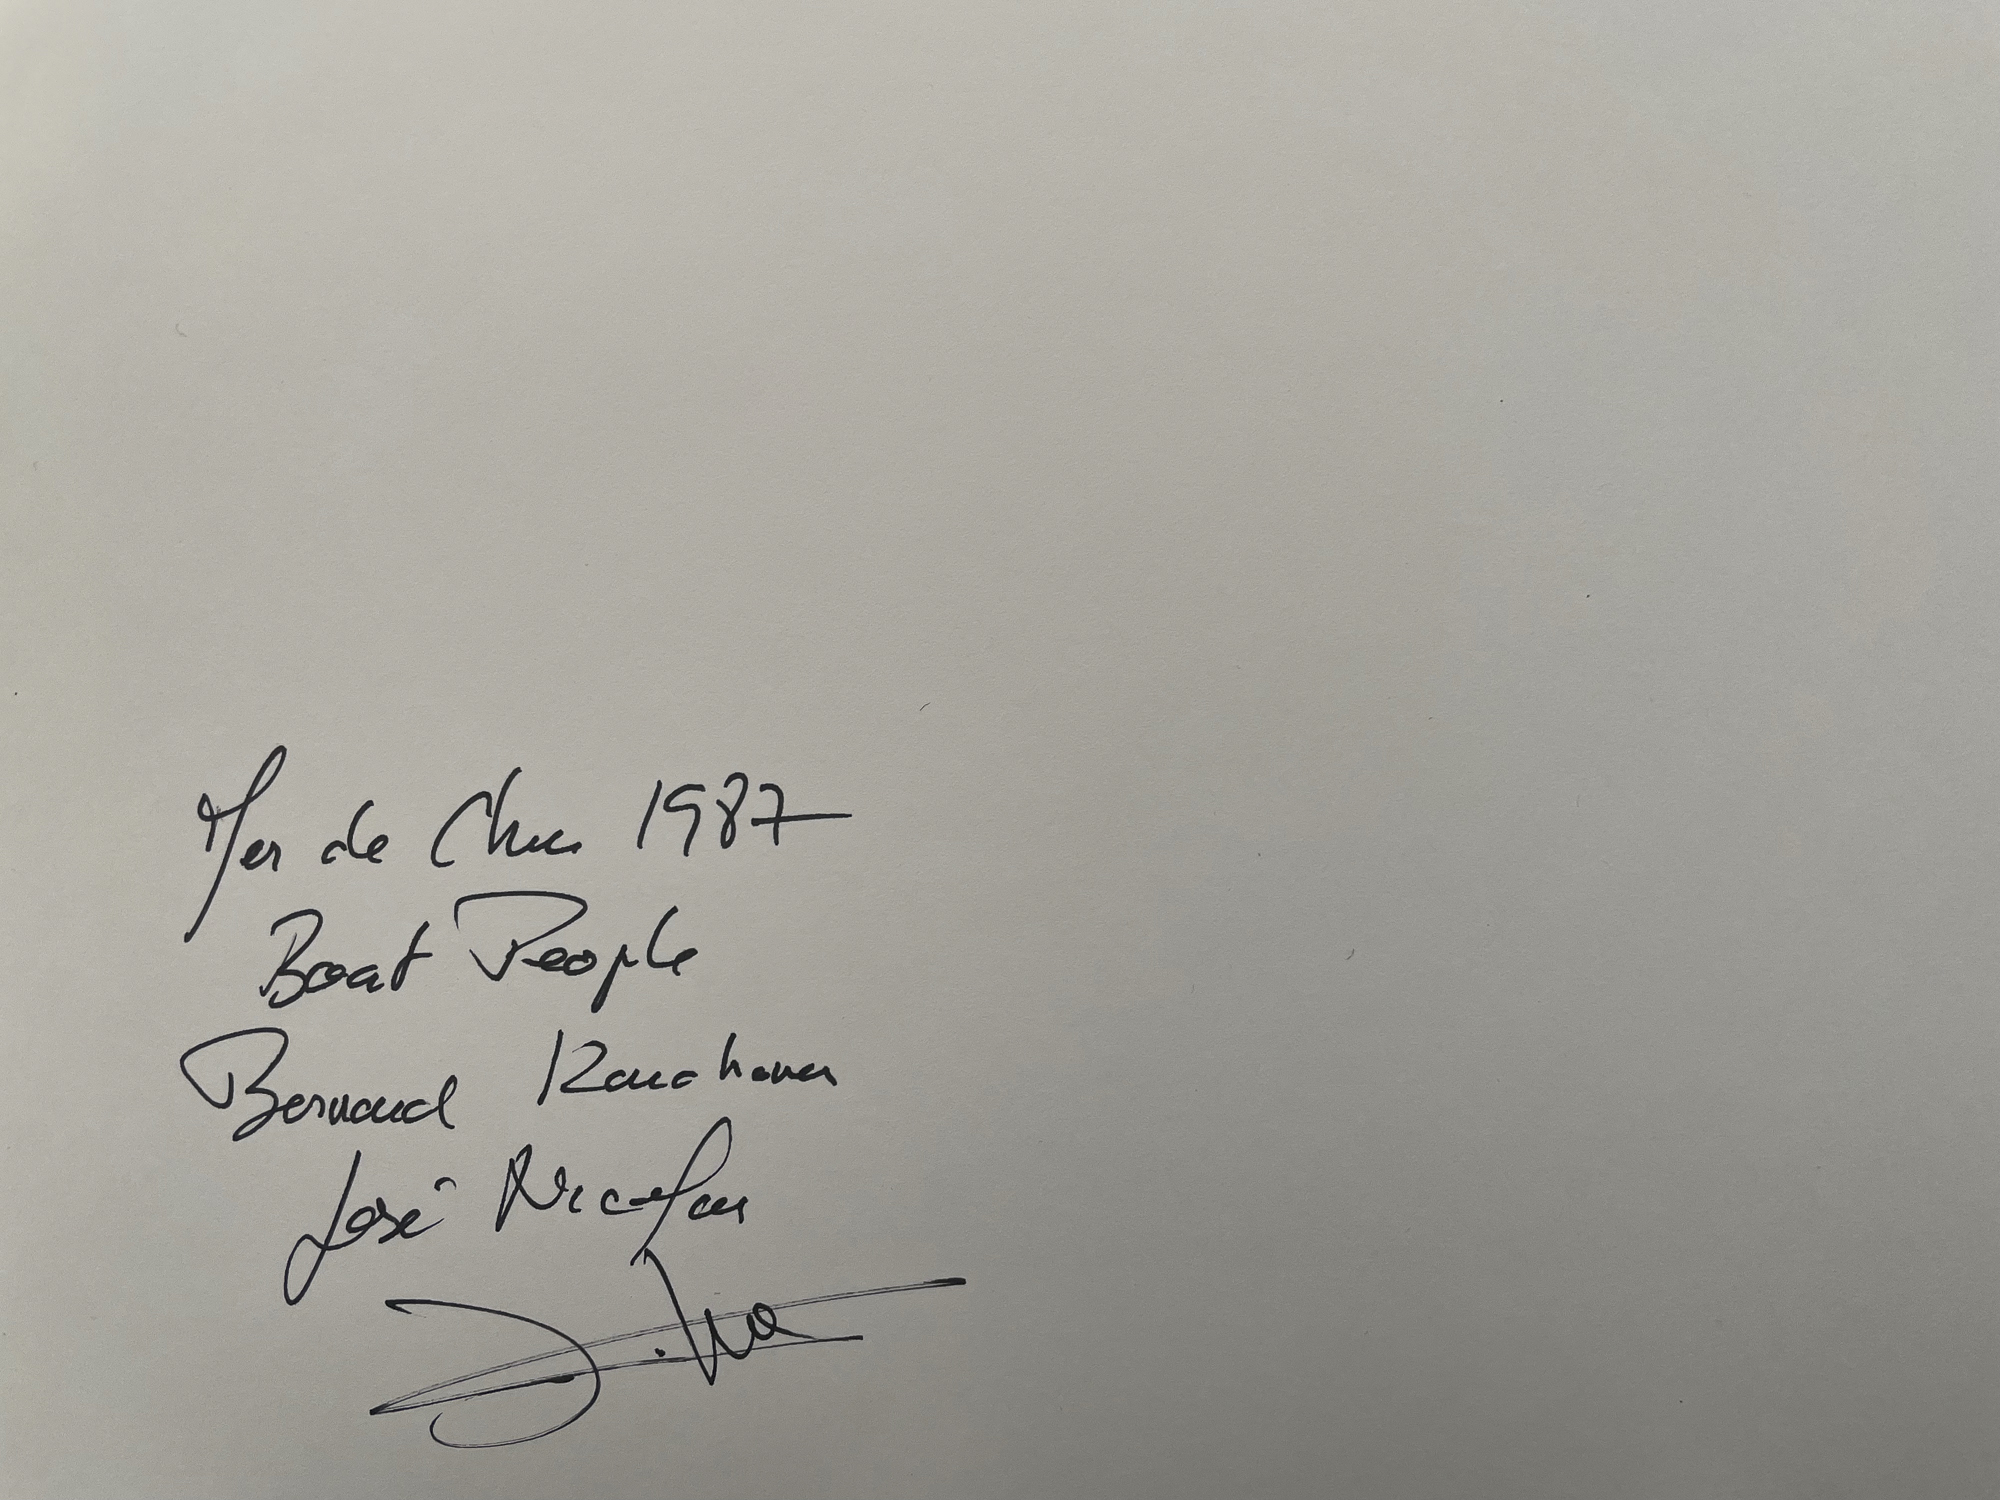 Mer de Chine 1987
Boat People
Bernard Kouchner
José Nicolas